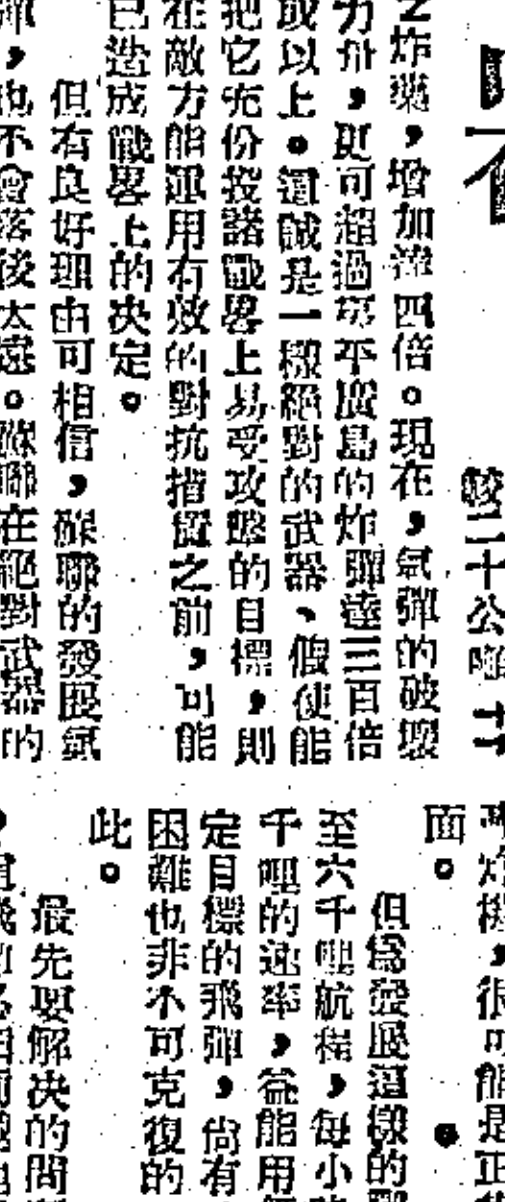 較二十公噸
之炸藥，增加達四倍。現在，氫彈的破壞
力卅，更可超過夷平廣島的炸彈達三百倍
或以上。這誠是一樣絕對的武器、假使能
把它充份投諸戰畧上易受攻擊的目標，則
在敵方能運用有效的對抗措置之前，可能
已造成戰畧上的決定。
但有良好理由可相信，蘇聯的發展氫
彈，也不會落後太遠。蘇聯在絕對武器的
炸機，很可能是正
面。
但爲發展這樣的
至六千哩航程，每小
千哩的速率，益能用
定目標的飛彈，尙有
困難也非不可克復的
此。
最先要解决的問